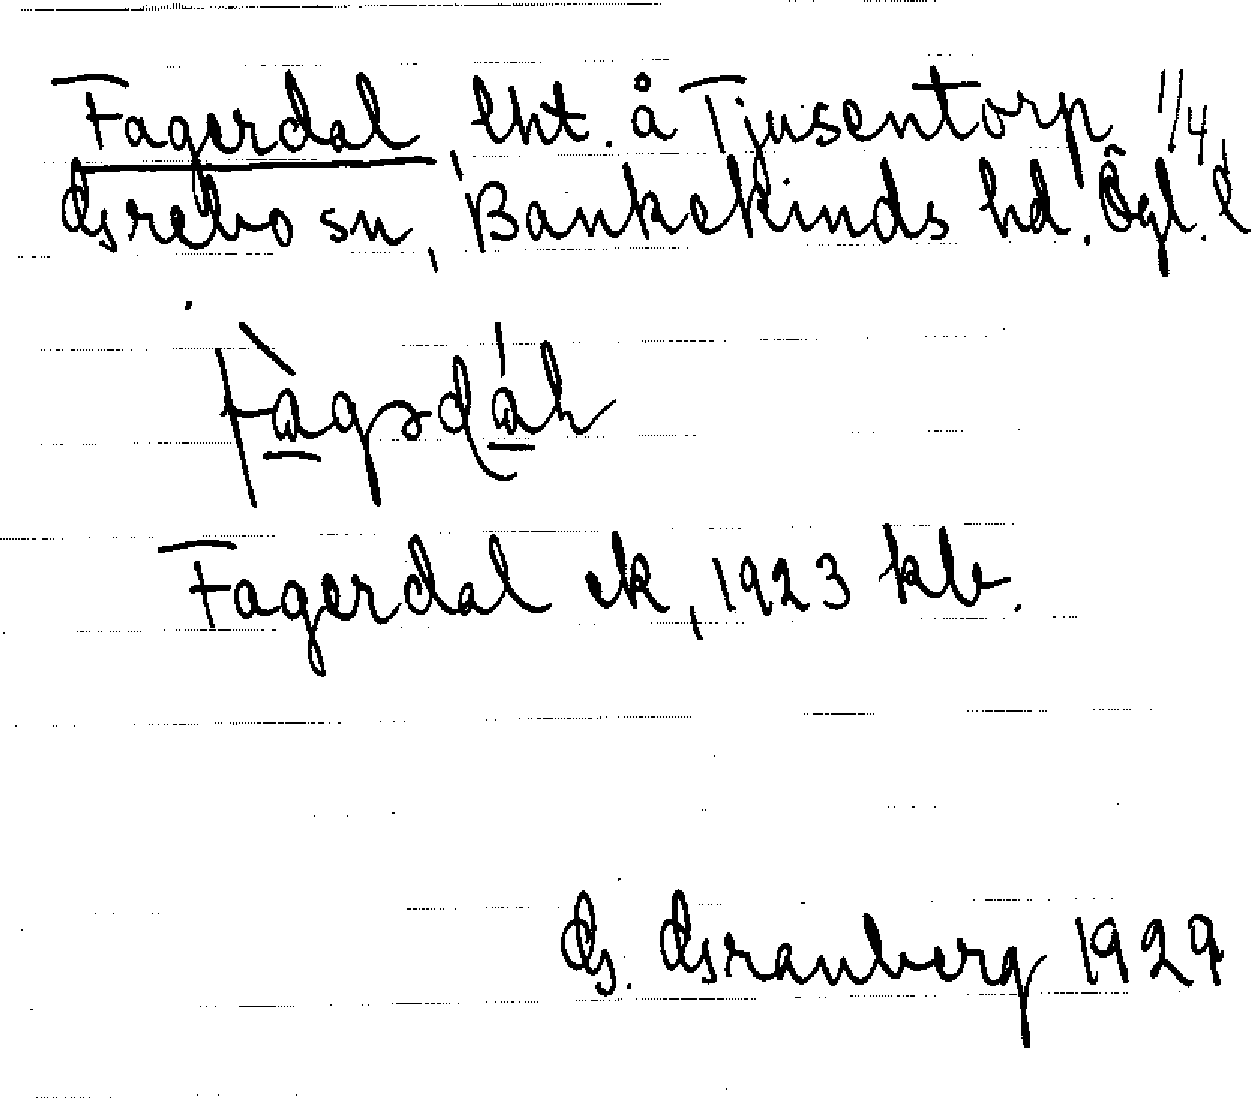 Fagerdal, lht. å Tjusentorp 1/4,
Grebo sn, Bankekinds hd. Ögl. l
fàgədál
Fagerdal ek, 1923 kb.
G. Granberg 1929